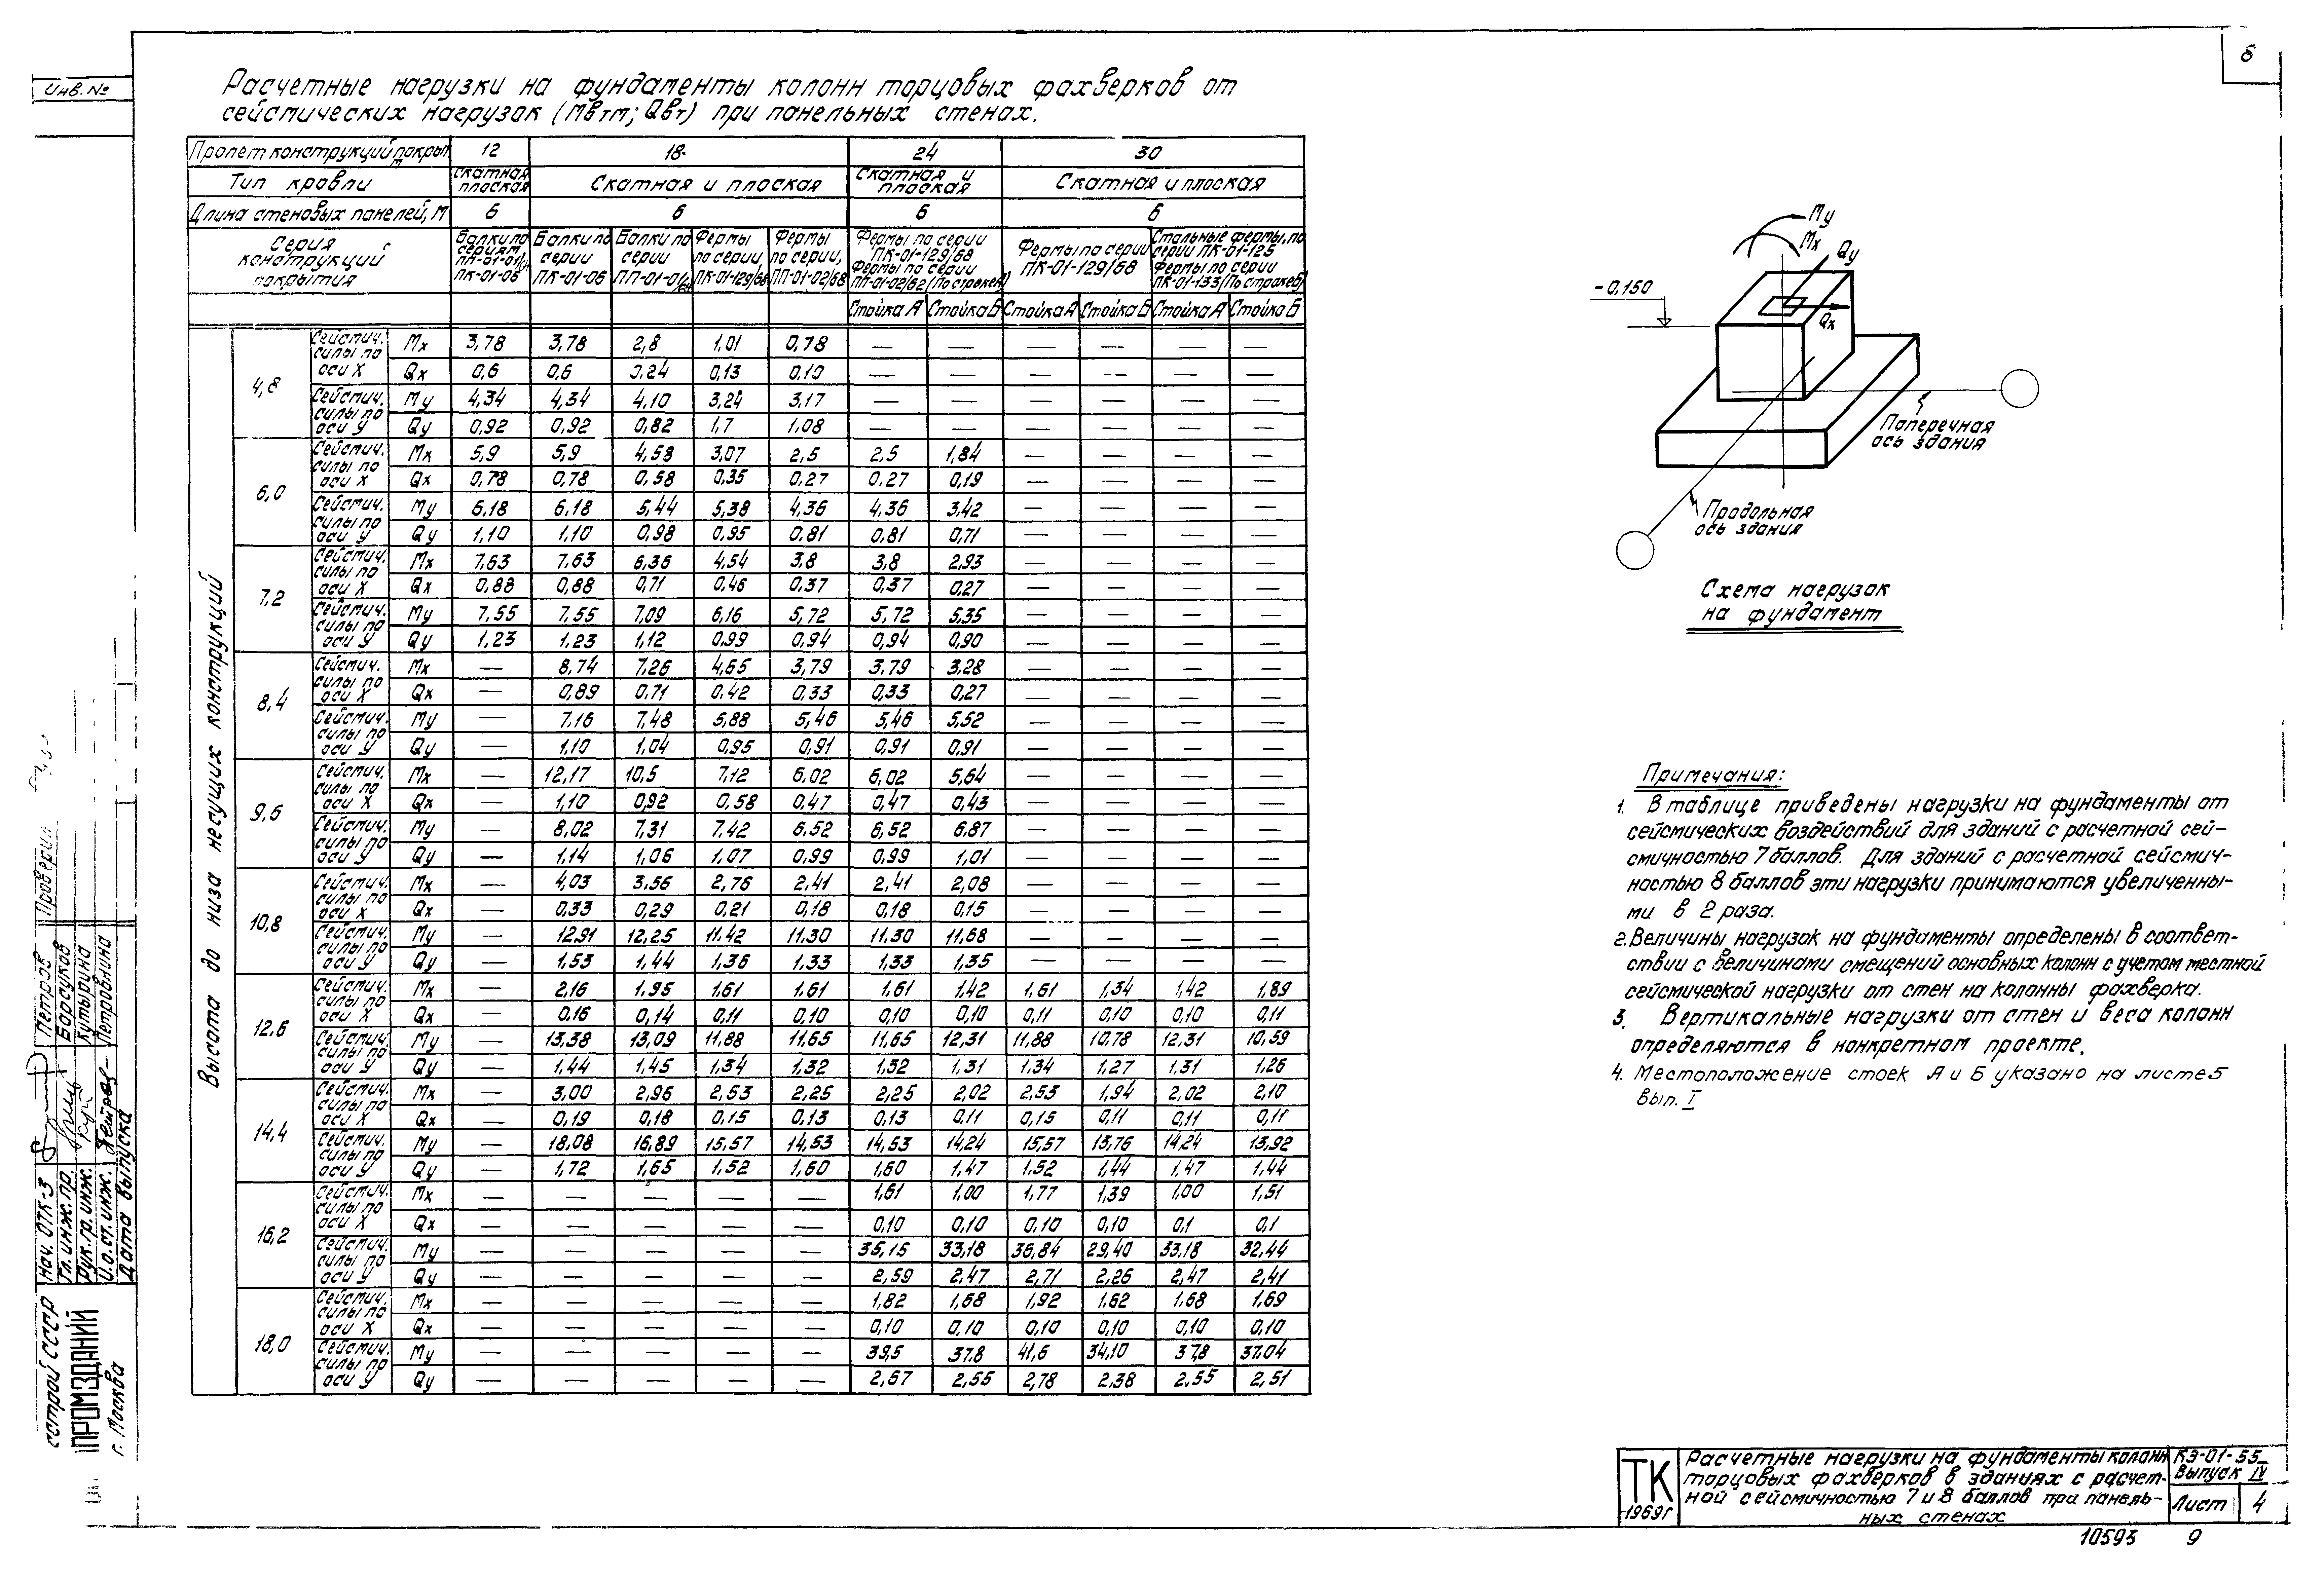 8
Инв. №
Расчетные нагрузки на фундаменты колонн торцовых фахверков от
сейсмических нагрузок (Мвтм; Qвт) при панельных стенах.
Пролет конструкций покрыт. м 12 18 24 30
Тип кровли Скатная плоская Скатная и плоская Скатная и плоская Скатная и плоская
Длина стеновых панелей, м 6 6 6 6
Серия конструкций покрытия
Балки по сериям ПК-01-06
Балки по серии ПК-01-06
Балки по серии ПП-01-01/64
Фермы по серии ПК-01-129/68
Фермы по серии, ПП-01-02/68
Фермы по серии ПК-01-129/68 Фермы по серии ПП-01-02/62 (По строке А)
Фермы по серии ПК-01-129/68
Стальные фермы, по серии ПК-01-125 Фермы по серии ПК-01-133 (По строке Б)
Стойка А Стойка Б Стойка А Стойка Б Стойка А Стойка Б
Высота до низа несущих конструкций
4,8
Сейсмич. силы по оси X Mx 3,78 3,78 2,8 1,01 0,78 — — — — — —
Qx 0,6 0,6 0.24 0,13 0,10 — — — — — —
Сейсмич. силы по оси У My 4,34 4,34 4,10 3,24 3,17 — — — — — —
Qy 0,92 0,92 0,82 1,7 1,08 — — — — — —
6,0
Сейсмич. силы по оси X Mx 5,9 5,9 4,58 3,07 2,5 2,5 1,84 — — — —
Qx 0,78 0,78 0,58 0,35 0,27 0,27 0,19 — — — —
Сейсмич. силы по оси У My 6,18 6,18 5,44 5,38 4,36 4,36 3,42 — — — —
Qy 1,10 1,10 0,98 0,95 0,81 0,81 0,71 — — — —
7,2
Сейсмич. силы по оси X Mx 7,63 7,63 6,36 4,54 3,8 3,8 2,93 — — — —
Qx 0,88 0,88 0,71 0,46 0,37 0,37 0,27 — — — —
Сейсмич. силы по оси У My 7,55 7,55 7,09 6,16 5,72 5,72 5,35 — — — —
Qy 1,23 1,23 1,12 0,99 0,94 0,94 0,90 — — — —
8,4
Сейсмич. силы по оси X Mx — 8,74 7,26 4,65 3,79 3,79 3,28 — — — —
Qx — 0,89 0,71 0,42 0,33 0,33 0,27 — — — —
Сейсмич. силы по оси У My — 7,16 7,48 5,88 5,46 5,46 5,52 — — — —
Qy — 1,10 1,04 0,95 0,91 0,91 0,91 — — — —
9,6
Сейсмич. силы по оси X Mx — 12,17 10,5 7,12 6,02 6,02 5,64 — — — —
Qx — 1,10 0,92 0,58 0,47 0,47 0,43 — — — —
Сейсмич. силы по оси У My — 8,02 7,31 7,42 6,52 6,52 6,87 — — — —
Qy — 1,14 1,06 1,07 0,99 0,99 1,01 — — — —
10,8
Сейсмич. силы по оси X Mx — 4,03 3,56 2,76 2,41 2,41 2,08 — — — —
Qx — 0,33 0,29 0,21 0,18 0,18 0,15 — — — —
Сейсмич. силы по оси У My — 12,91 12,25 11,42 11,30 11,30 11,68 — — — —
Qy — 1,53 1,44 1,36 1,33 1,33 1,35 — — — —
12,6
Сейсмич. силы по оси X Mx — 2,16 1,95 1,61 1,61 1,61 1,42 1,61 1,34 1,42 1,89
Qx — 0,16 0,14 0,11 0,10 0,10 0,10 0,11 0,10 0,10 0,11
Сейсмич. силы по оси У My — 13,38 13,09 11,88 11,65 11,65 12,31 11,88 10,78 12,31 10,59
Qy — 1,44 1,45 1,34 1,32 1,32 1,31 1,34 1,27 1,31 1,26
14,4
Сейсмич. силы по оси X Mx — 3,00 2,96 2,53 2,25 2,25 2,02 2,53 1,94 2,02 2,10
Qx — 0,19 0,18 0,15 0,13 0,13 0,11 0,15 0,11 0,11 0,11
Сейсмич. силы по оси У My — 18,08 16,89 15,57 14,53 14,53 14,24 15,57 13,76 14,24 13,92
Qy — 1,72 1,65 1,52 1,60 1,60 1,47 1,52 1,44 1,47 1,44
16,2
Сейсмич. силы по оси X Mx — — — — — 1,61 1,00 1,77 1,39 1,00 1,51
Qx — — — — — 0,10 0,10 0,10 0,10 0,1 0,1
Сейсмич. силы по оси У My — — — — — 35,15 33,18 36,84 29,40 33,18 32,44
Qy — — — — — 2,59 2,47 2,71 2,26 2,47 2,41
18,0
Сейсмич. силы по оси X Mx — — — — — 1,82 1,68 1,92 1,62 1,68 1,69
Qx — — — — — 0,10 0,10 0,10 0,10 0,10 0,10
Сейсмич. силы по оси У My — — — — — 39,5 37,8 41,6 34,10 37,8 37,04
Qy — — — — — 2,67 2,55 2,78 2,38 2,55 2,51
My
Mx
Qy
Qx
-0,150
Поперечная
ось здания
Продольная
ось здания
Схема нагрузок
на фундамент
Примечания:
1. В таблице приведены нагрузки на фундаменты от
сейсмических воздействий для зданий с расчетной сей-
смичностью 7 баллов. Для зданий с расчетной сейсмич-
ностью 8 баллов эти нагрузки принимаются увеличенны-
ми в 2 раза.
2. Величины нагрузок на фундаменты определены в соответ-
ствии с величинами смещений основных колонн с учетом местной
сейсмической нагрузки от стен на колонны фахверка.
3. Вертикальные нагрузки от стен и веса колонн
определяются в конкретном проекте.
4. Местоположение стоек А и Б указано на листе 5
вып. I
Проверил
Нач. ОТК-3 Петров
Гл. инж. пр. Борсуков
Рук. гр. инж. Кутырина
И.о. ст. инж. Петровнина
Дата выпуска
сстрой СССР
ПРОМЗДАНИЙ
г. Москва
ТК
1969г
Расчетные нагрузки на фундаменты колонн
торцовых фахверков в зданиях с расчет-
ной сейсмичностью 7 и 8 баллов при панель-
ных стенах
КЭ-01-55
Выпуск IV
Лист 4
10593 9